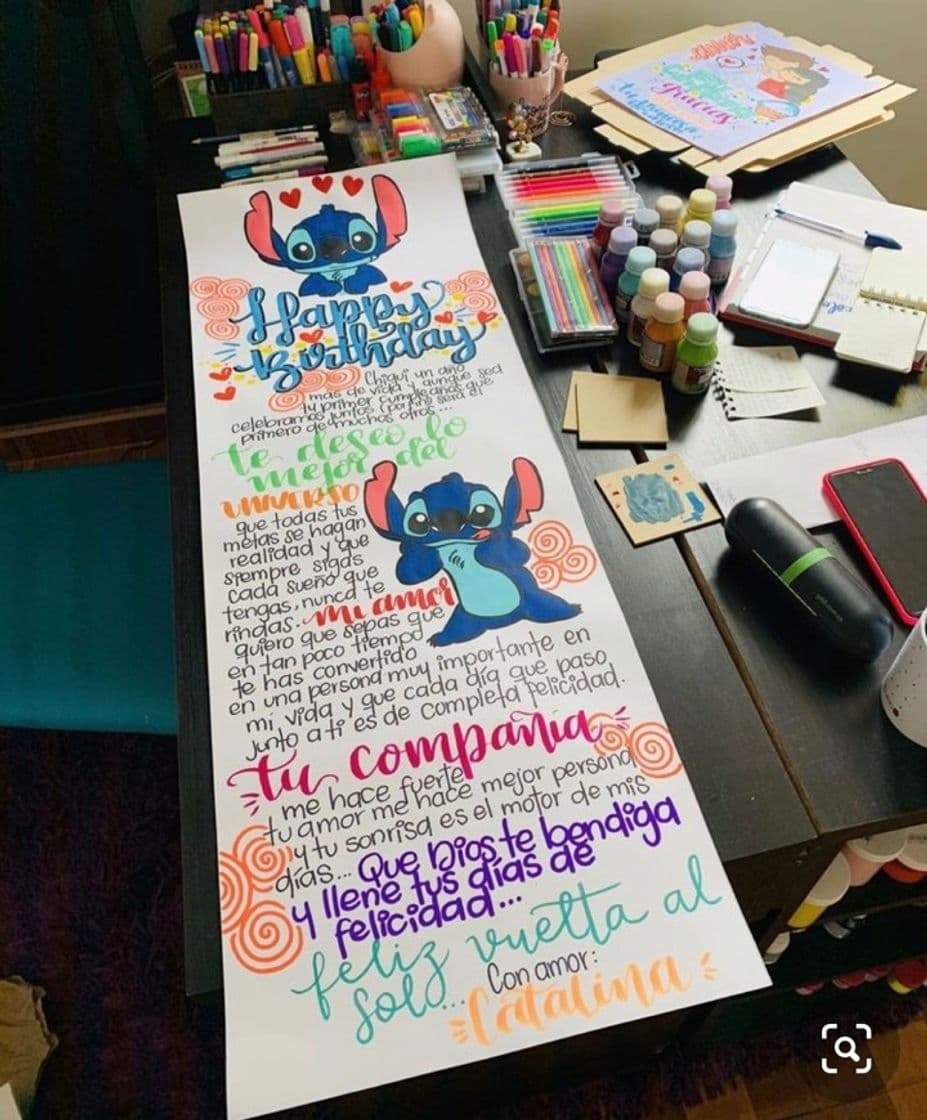 Happy
Birthday
Chiqui un año
mas de vida y aunque sea
tu primer cumpleaños que
celebramos juntos (porque será el
primero de muchos otros...
te deseo lo
mejor del
UNIVERSO
que todas tus
metas se hagan
realidad y que
siempre sigas
cada sueño que
tengas, nunca te
rindas. Mi amor
quiero que sepas que
en tan poco tiempo
te has convertido
en una persona muy importante en
mi vida y que cada día que paso
junto a ti es de completa felicidad.
tu compañia
me hace fuerte
tu amor me hace mejor persona
y tu sonrisa es el motor de mis
días... Que Dios te bendiga
y llene tus días de
felicidad...
feliz vuelta al
sol... Con amor:
Catalina
gracias